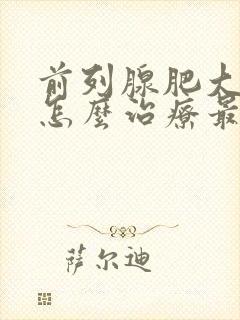 前列腺肥大
怎麼治療最
萨尔迪